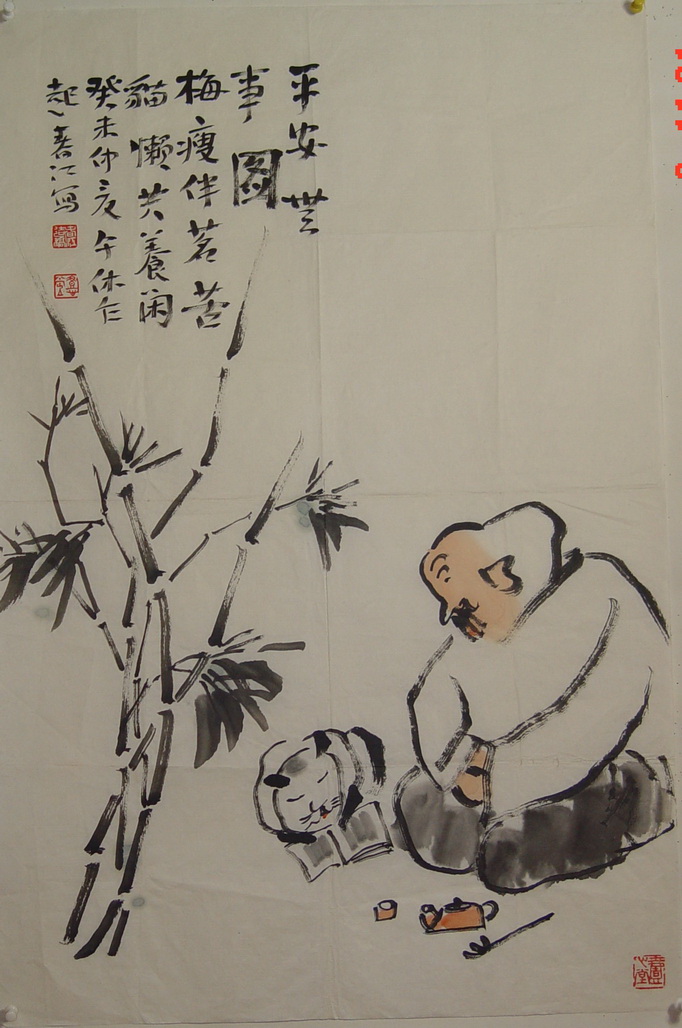 平安無
事图
梅瘦伴茗苦
貓懒共養闲
癸未仲夏午休乍
起春江写